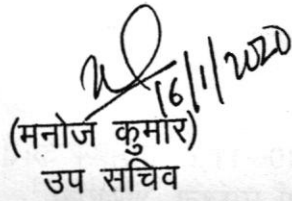 16/1/2020
(मनोज कुमार)
उप सचिव